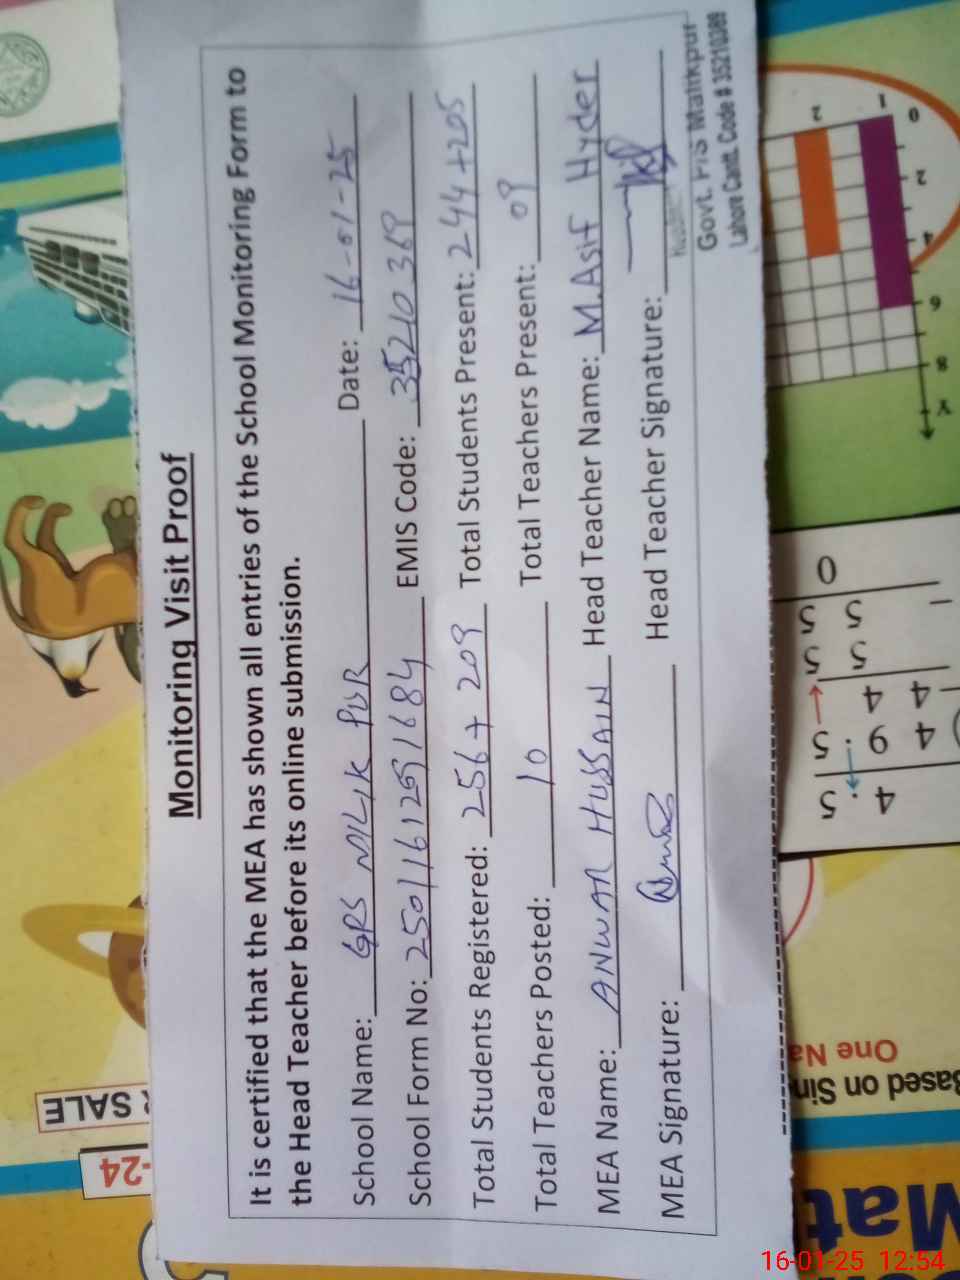 Monitoring Visit Proof
It is certified that the MEA has shown all entries of the School Monitoring Form to
the Head Teacher before its online submission.
School Name: GPS MILIK PUR Date: 16-01-25
School Form No: 25011612591684 EMIS Code: 35210369
Total Students Registered: 256+209 Total Students Present: 244+205
Total Teachers Posted: 10 Total Teachers Present: 09
MEA Name: ANWAR HUSSAIN Head Teacher Name: M.Asif Hyder
MEA Signature: Head Teacher Signature:
Govt. P/S Malikpur
Lahore Cantt. Code # 35210369
0
1
2
2
4
6
8
X
4.5
4 9.5
4 4
4 5 5
5 5
0
R SALE
-24
Based on Sin
One Na
Mat
16-01-25 12:54